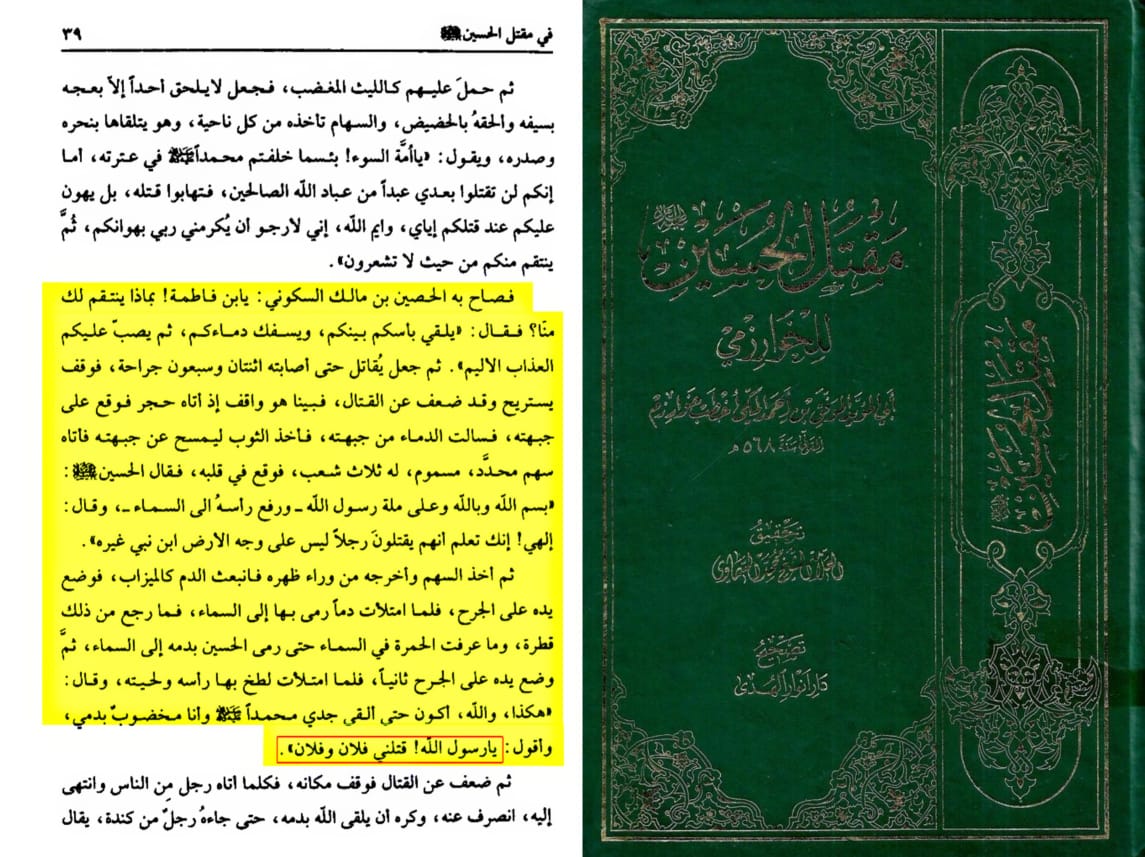 في مقتل الحسين ﷺ
٣٩
ثم حملَ عليـهم كـالليث المغضب، فـجعل لايـلحق أحـداً إلاّ بعجـه
بسيفه وألحقهُ بالحضيض، والسهام تأخذه من كل ناحية، وهو يتلقاها بنحره
وصدره، ويقول: «ياأمَّة السوء! بئسما خلفتم محمداًﷺ في عترته، أما
إنكم لن تقتلوا بعدي عبداً من عباد اللّه الصالحين، فتهابوا قتله، بل يهون
عليكم عند قتلكم إياي، وايم اللّه، إني لارجو أن يُكرمني ربي بهوانكم، ثُمَّ
ينتقم منكم من حيث لا تشعرون».
فـصاح به الحـصين بن مالـك السكوني: يابن فـاطمـة! بماذا ينتـقم لك
منّا؟ فـقـال: «يلـقي بأسـكم بينـكم، ويسـفـك دمـاءكـم، ثم يصبّ عليـكم
العذاب الاليم». ثم جعل يُقاتل حتى أصابته اثنتان وسبعون جراحة، فوقف
يستريح وقـد ضعف عن القتال، فـبينا هـو واقف إذ أتاه حـجر فـوقع على
جبهته، فـسالت الدماء من جبهـته، فـأخذ الثوب ليـمسح عن جبهـته فـأتاه
سهم محدَّد، مسموم، له ثلاث شعب، فوقع في قلبه، فقال الحسينﷺ:
«بسم اللّه وباللّه وعلى ملة رسول اللّه ـ ورفع رأسهُ الى السماء ـ، وقال:
إلهي! إنك تعلم أنهم يقتلونَ رجلاً ليس على وجه الارض ابن نبي غيره».
ثم أخذ السهم وأخرجه من وراء ظهره فـانبعث الدم كالميزاب، فوضع
يده على الجرح، فلمـا امتلأت دمـاً رمى بهـا إلى السمـاء، فـما رجع من ذلك
قطرة، وما عرفت الحمرة في السماء حتى رمى الحسين بدمه إلى السماء، ثمَّ
وضع يده على الجرح ثانيـاً، فلمـا امتلأت لطخ بهـا رأسه ولحيـته، وقـال:
«هكذا، واللّه، أكـون حتى ألقى جدي محـمداًﷺ وأنا مخضوبٌ بدمي،
وأقول: يارسول اللّه! قتلني فلان وفلان».
ثم ضعف عن القتال فوقف مكانه، فكلما أتاه رجل مِن الناس وانتهى
إليه، انصرف عنه، وكره أن يلقى اللّه بدمه، حتى جاءهُ رجلٌ من كندة، يقال
مَقتَل الحُسَين
للخوارزمي
أبي المؤيد الموفق بن احمد المكي أخطب خوارزم
المتوفى سنة ٥٦٨ هـ
تحقيق
العلامة الشيخ محمد السماوي
تصحيح
دار أنوار الهدى
مقتل الحسين